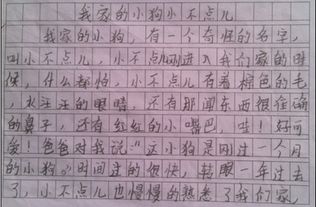 我家的小狗小不点儿
我家的小狗，有一个奇怪的名字，
叫小不点儿，小不点儿刚进入我们家的时
候，什么都怕，小不点儿有着棕色的毛
，水汪汪的眼睛，还有那闻东西很准确
的鼻子，还有红红的小嘴巴，哇！好可
爱！爸爸对我说："这小狗是刚过一个月
的小狗。"时间过的很快，转眼一年过去
了，小不点儿也慢慢的熟悉了我们家